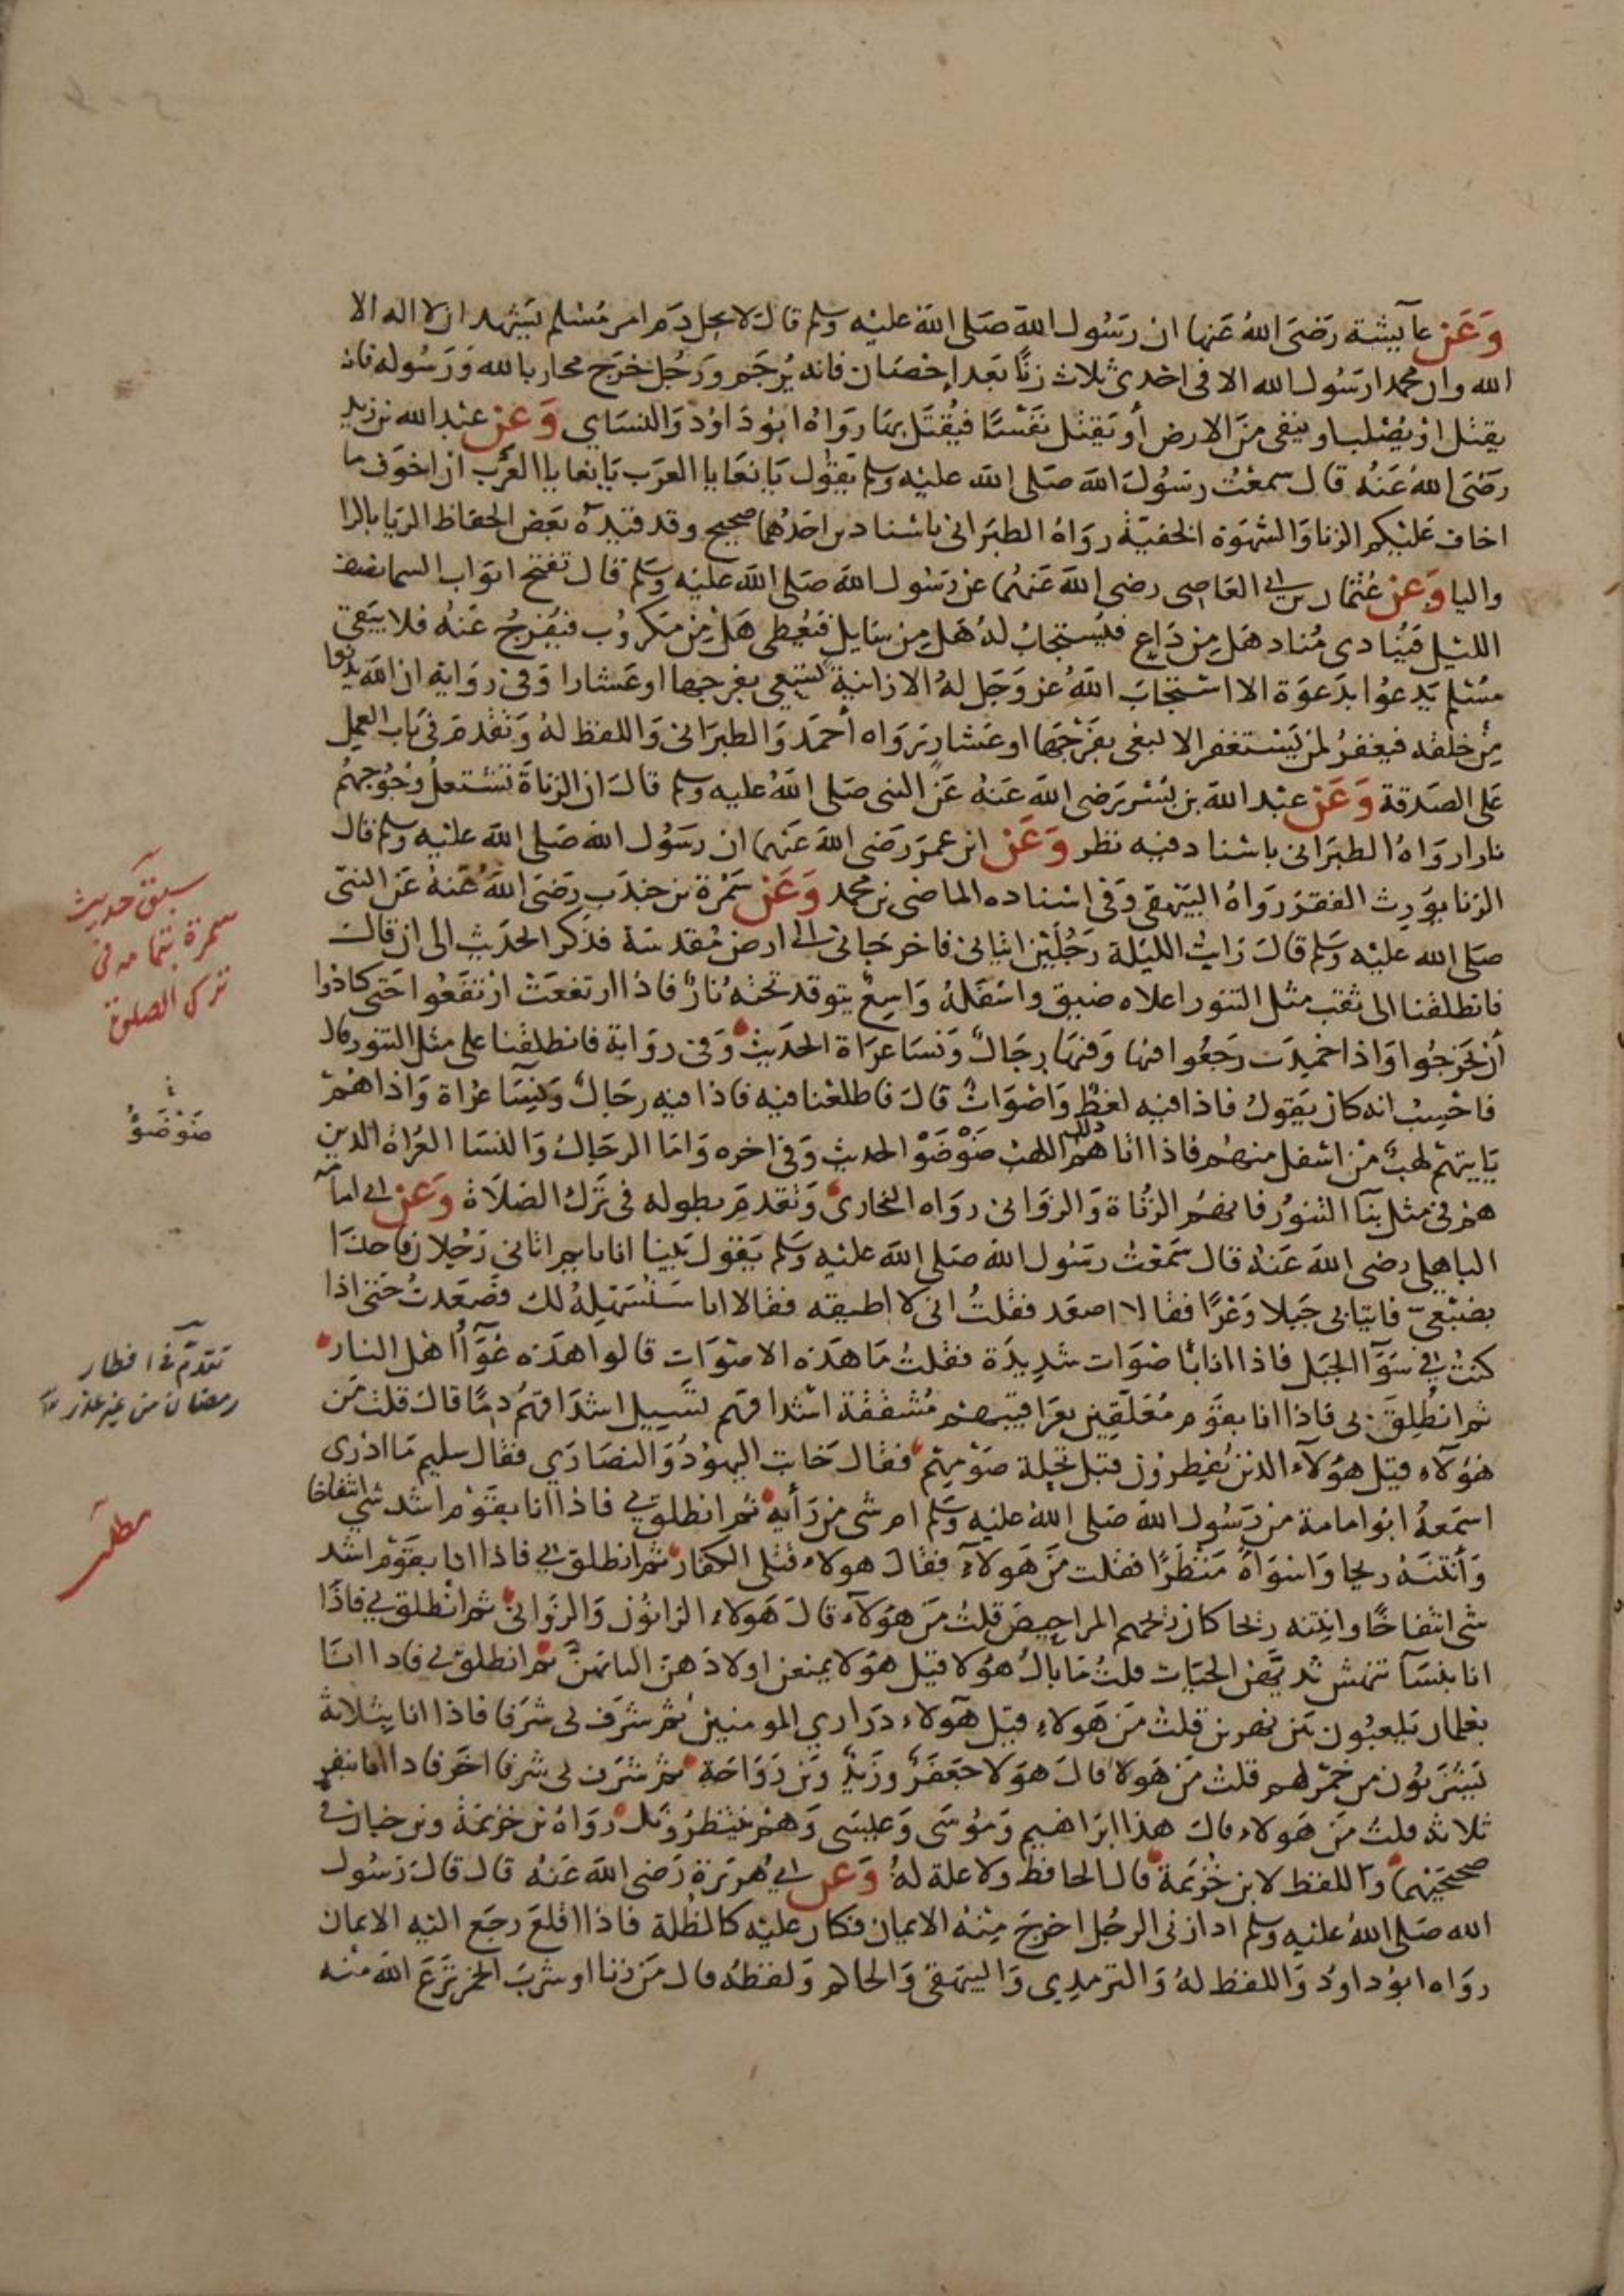 وَعَن عآيشة رَضىَ اللهُ عَنها ان رَسُول الله صَلى الله عليْه وسلم قال لا يحل دَم امرِ مُسْلم يَشهد ان لا اله الا
الله وان محمدا رسُول الله الا فى احْدى ثلاث زِنًا بَعد إحْصَان فانه يُرجَم وَرَجُل خَرَج محاربا لله وَرَسُوله فانه
يقتل اوْ يُصْلب او ينفى مِنَ الارض أو يَقتل نفْسًا فيُقتَل بهَا رَوَاهُ ابُو دَاوُد وَالنسَاي وَعَن عبْد الله بن زيد
رَضىَ اللهُ عَنهُ قال سمعْتُ رسُولَ الله صَلى الله عليْه وسلم يَقوُل يَا بغَايا العَرَب يَا بغايا العَرَب ان اخوَف ما
اخاف عَليْكم الزنا وَالشهْوَة الخفيّة رَوَاهُ الطبَرانى باسْنادين احَدُهمَا صحيح وقد قيّدهُ بَعض الحفاظ الريا بالرا
واليا وَعَن عُثمان بن ابى العَاصى رضى الله عَنهُما عن رَسُول الله صَلى الله عليْه وَسَلم قال تفتح ابوَاب السما نصف
الليْل فيُنادى مُناد هَل مِن دَاعٍ فيُستجَابُ لهُ هَل مِن سَايل فيُعْطى هَل مِن مَكروُب فيُفرجُ عَنهُ فلا يَبقى
مُسْلم يَدعُوا بدَعوَة الا اسْتجَابَ اللهُ عز وَجَل لهُ الا زانية تسْعى بفرجهَا او عَشارا وَفى رِوَاية ان الله يدنوا
مِنْ خلقه فيغفرُ لمن يَسْتغفر الا لبغى بفرْجهَا او عَشارٍ رَوَاه أحمَد وَالطبَرَانى وَاللفظ لهُ وَتقدمَ فى بَاب العمل
عَلى الصَدقة وَعَن عبْد الله بن بُسْر رَضى الله عَنهُ عَن النبى صَلى اللهُ عليه وسلم قالَ ان الزناةَ تشتعلُ وُجُوههُم
نارا رَوَاهُ الطبَرانى باسْناد فيْه نظر وَعَن ابن عمَرَ رَضى الله عَنهما ان رَسُول الله صَلى الله عليْه وسلم قال
الزنا يُورِث الفقرَ رَوَاهُ البَيْهقى وَفى اسْناده الماضى بن محمد وَعَن سَمُرَة بن جندَب رَضىَ اللهُ عَنهُ عَن النبىّ
صَلى الله عليْه وَسَلم قالَ رَايتُ الليْلة رَجُليْن اتيانى فاخرَجَانى الى ارض مُقدسَة فذكر الحَدَيث الى ان قال
فانطلقنا الى ثقب مثل التنور اعلاه ضيق واسْفلهُ وَاسِعٌ يتوقد تحته نارٌ فاذا ارتفعَتْ ارتفعُوا حَتى كادُوا
أن يَخرُجُوا وَاذا خمِدَت رَجَعُوا فيها وَفيْهَا رِجَالٌ وَنسَا عرَاة الحَديث وَفى رِوَاية فانطلقنا على مثل التنور قال
فاحْسِبُ انه كان يَقوُلُ فاذا فيْه لغطٌ وَاصْوَاتٌ قالَ فاطلعْنا فيْه فاذا فيْه رِجَالٌ وَنِسَآ عُرَاة وَاذا هُمْ
يَاتيهمْ لهبٌ مِنْ اسْفل منهُم فاذا اتاهُم ذلك اللهب ضَوْضَوْا الحَديث وَفى اخره وَامَا الرجَالُ وَالنسَا العُرَاة الذين
هم فى مثل بنآ التنوُر فانهُم الزُناة وَالزوَانى رَوَاه البخارىُّ وَتقدمَ بطوله فى تَرْك الصَلاة وَعَن ابى امَامَه
الباهلى رضى الله عَنهُ قال سَمعْتُ رسُول الله صَلى الله عليْه وَسَلم يَقوُل بَيْنا انا نايم اتانى رَجُلان فاخذَا
بضبْعىّ فاتيَا بى جَبلا وَعْرًا فقالا اصعَد فقلتُ انى لا اطيقه فقالا انا سَنسَهّلهُ لكَ فصَعدتُ حَتى اذا
كنتُ فى سَوَآ الجَبَل فاذا انا باصْوَات شدِيدَة فقلتُ مَا هَذه الاصْوَات قالوا هَذه عُوَآءُ اهْل النار
ثم انطُلِقَ بى فاذا انا بقوْم مُعَلقِين بعَرَاقيبهم مُشققة اشداقهم تسِيل اشدَاقهُم دمًا قالَ قلت مَن
هَؤلآءِ قيل هؤلآء الذين يُفطِرُون قبْل تحِلة صَوْمِهمْ فقال خابَت اليهُودُ وَالنصَارَى فقال سليم مَا ادرى
اسَمعهُ ابوُ امَامة مِن رَسُول الله صَلى الله عليْه وَسَلم ام شى مِن رَأيِه ثم انطلق بى فاذا انا بقوْم اشد شى انتفاخا
وَأنتنَه ريحا وَاسْوَاهُ مَنظَرًا فقلت مَن هَولآء فقالَ هولاء قتلى الكفار ثم انطلق بى فاذا انا بقوْم اشد
شى انتفاخًا وانتنه ريحا كان ريحهم المرَاحِيض قلتُ مَن هَوُلآء قالَ هَولاء الزانوُن وَالزوَانى ثم انطلق بى فاذا
انا بنسَآ تنهش ثديَّهن الحيّات قلتُ مَا بالُ هؤُلا قيل هؤلا يمنعن اولادَهن البَانهنّ ثم انطلق بى فاذا انا
بغلمان يَلعبُون بَين نهرين قلتُ مَن هَولاءِ قيْل هَولاء ذرَارى المومنين ثم شرَف بى شرَفا فاذا انا بثلاثة
يَشرَبُون مِن خمْرلهم قلت مَن هَولا قالَ هَولا جَعفرٌ وزَيدٌ وَبن رَوَاحَة ثم شرَف بى شرفا اخر فاذا انا بنفر
ثلاثة قلتُ مَن هَولاء قالَ هذا ابرَاهيم وَموُسَى وَعيسَى وَهُم ينتظرُونك رَوَاهُ بن خزيمَة وبن حبان فى
صحيحَيْهما وَاللفظ لابن خُزيمَة قال الحافظ ولا علة لهُ وَعَن ابى هُرَيرَة رَضى الله عَنهُ قال قالَ رَسُول
الله صَلى اللهُ عليْه وسلم اذا زنى الرجُل اخرِجَ مِنهُ الايمان فكان عليْه كالظلة فاذا اقلعَ رجَع اليْه الايمان
رَوَاه ابوُ داوُد وَاللفظ لهُ وَالترمِدِى وَالبيهَقىُ وَالحاكم وَلفظهُ قال مَن زنا او شرِبَ الخمر نزَعَ الله منه
سبق حديث
سمرة بتمامه فى
ترك الصلوة
ضَوْضَوُ
تقدم فى افطار
رمضان من غير عذر
مطلب